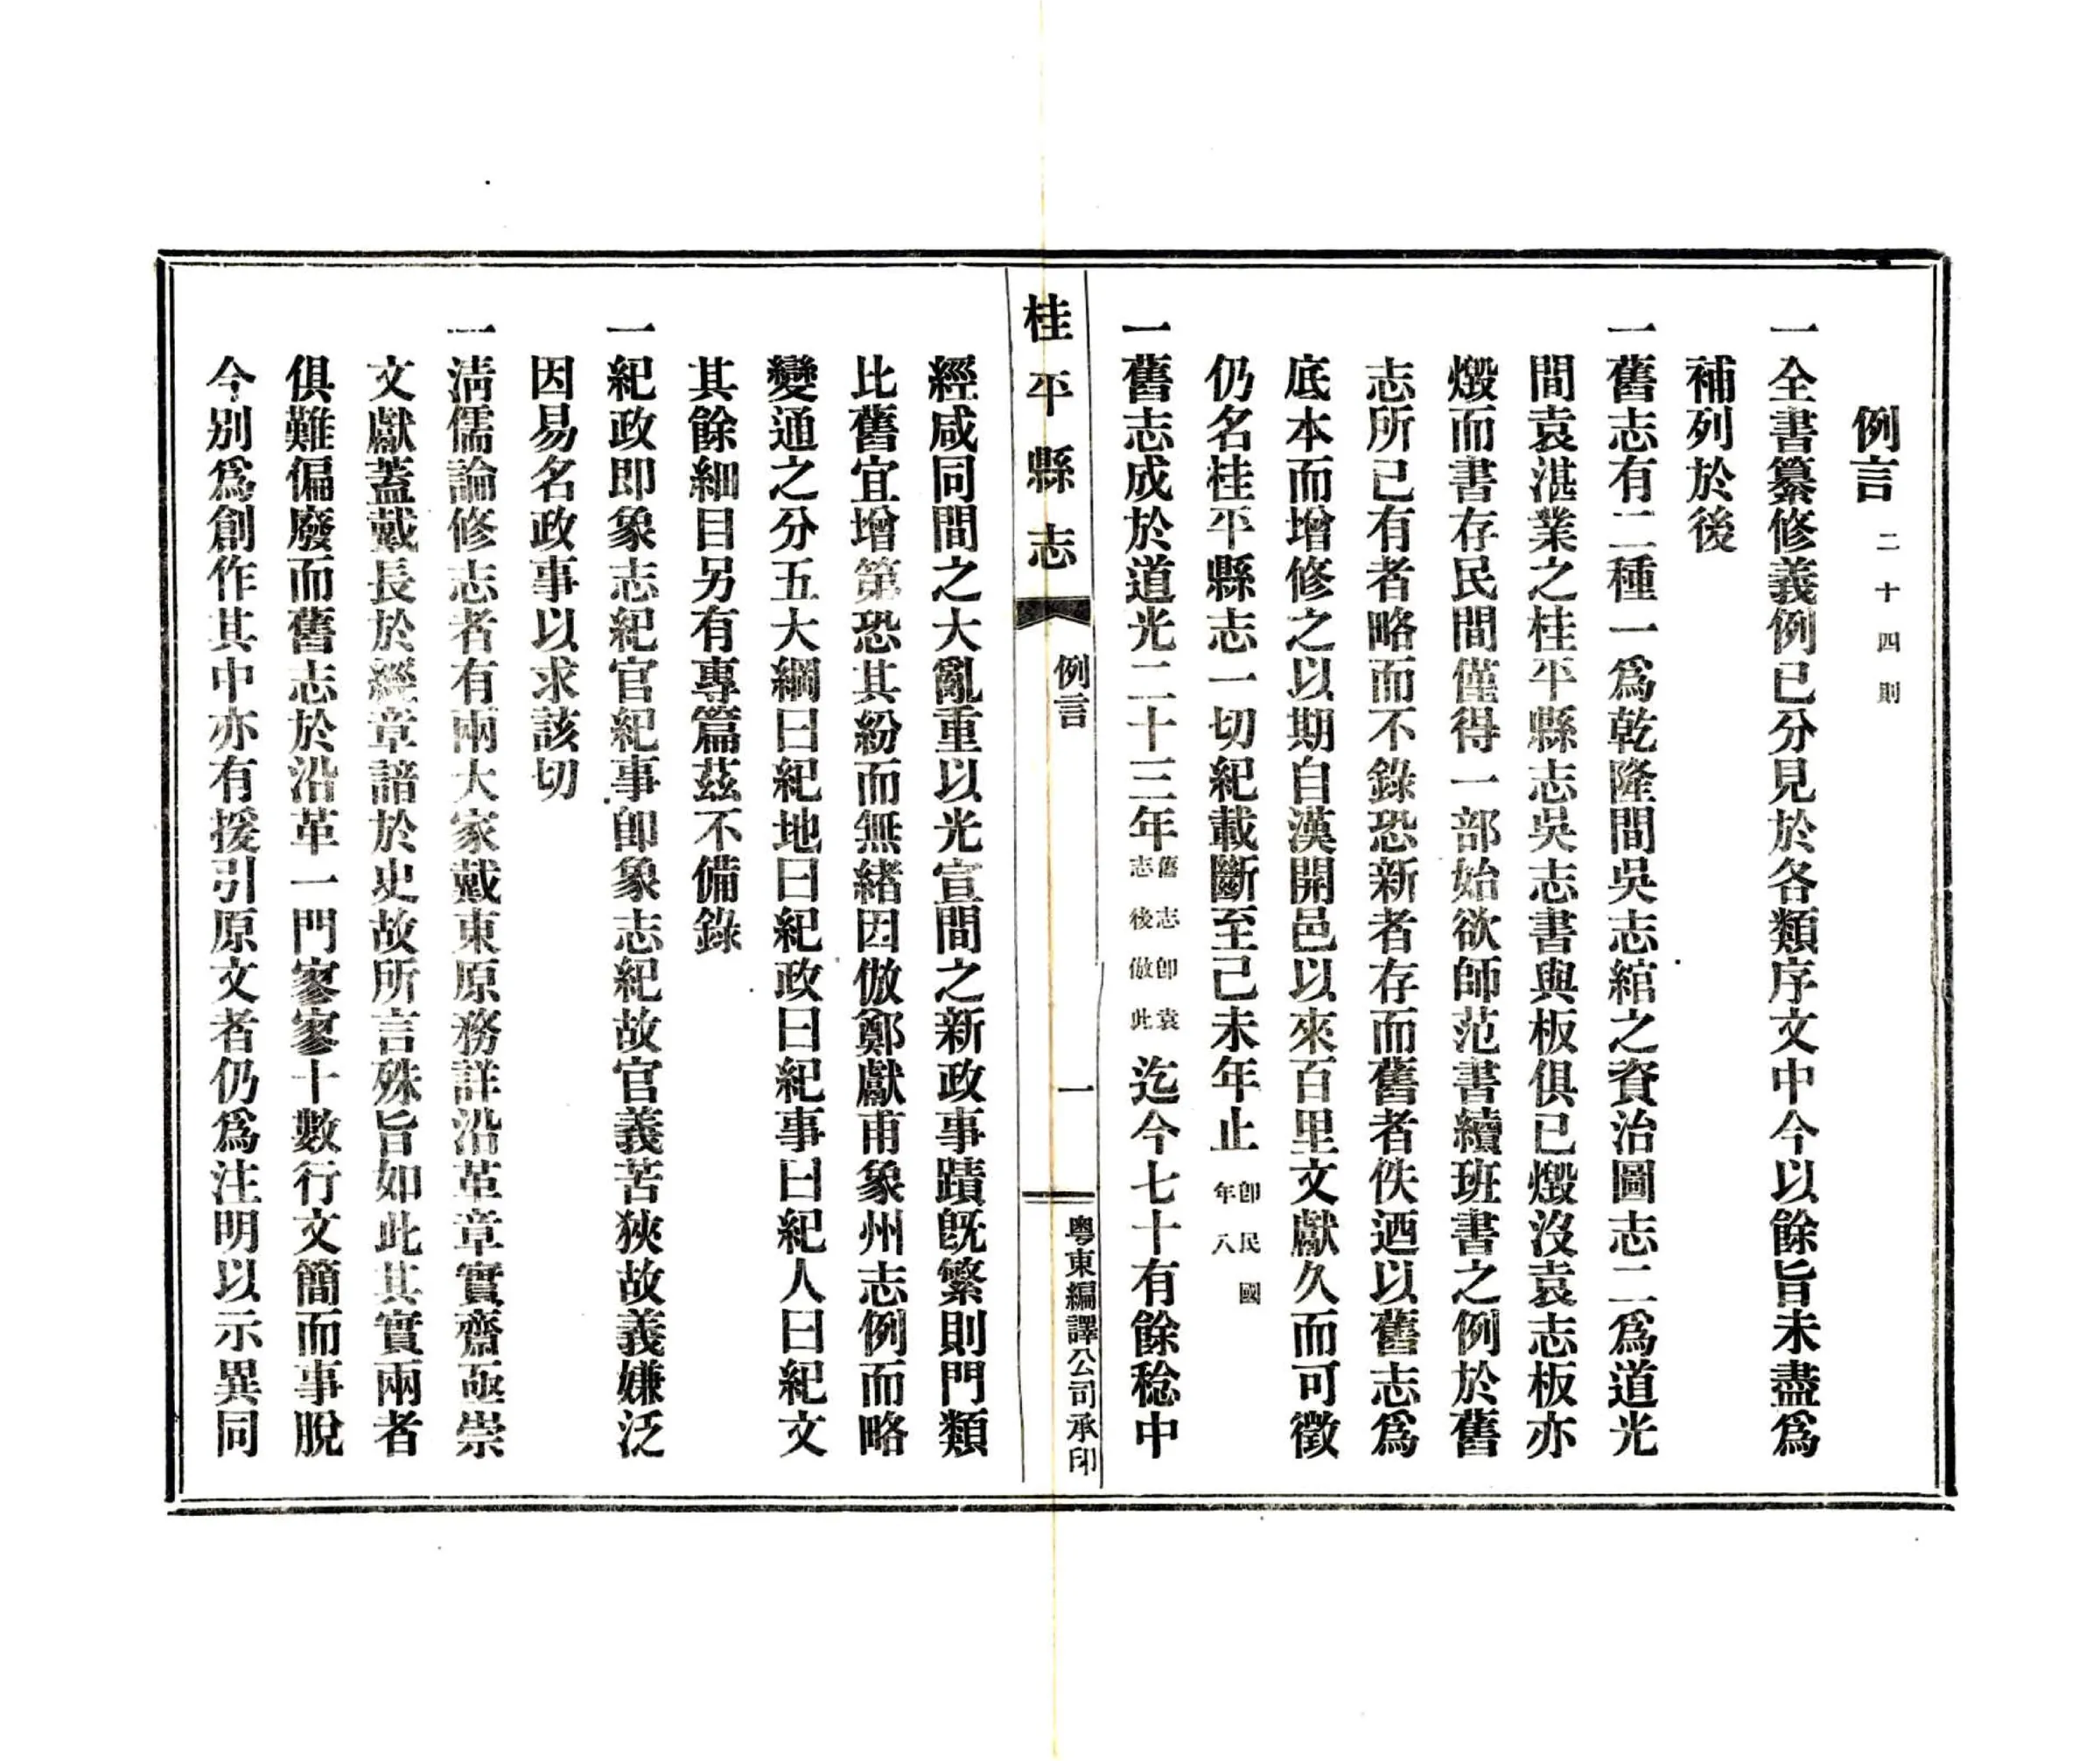 例言二十四則
一全書纂修義例已分見於各類序文中今以餘旨未盡爲
補列於後
一舊志有二種一爲乾隆間吳志綰之資治圖志二爲道光
間袁湛業之桂平縣志吳志書與板俱已燬沒袁志板亦
燬而書存民間僅得一部始欲師范書續班書之例於舊
志所已有者略而不錄恐新者存而舊者佚迺以舊志爲
底本而增修之以期自漢開邑以來百里文獻久而可徵
仍名桂平縣志一切紀載斷至己未年止卽民國年八
一舊志成於道光二十三年舊志卽袁志後倣此迄今七十有餘稔中
桂平縣志
例言
一
粵東編譯公司承印
經咸同間之大亂重以光宣間之新政事蹟旣繁則門類
比舊宜增第恐其紛而無緒因倣鄭獻甫象州志例而略
變通之分五大綱曰紀地曰紀政曰紀事曰紀人曰紀文
其餘細目另有專篇茲不備錄
一紀政即象志紀官紀事卽象志紀故官義苦狹故義嫌泛
因易名政事以求該切
一淸儒論修志者有兩大家戴東原務詳沿革章實齋亟崇
文獻蓋戴長於經章諳於史故所言殊旨如此其實兩者
俱難偏廢而舊志於沿革一門寥寥十數行文簡而事脫
今別爲創作其中亦有援引原文者仍爲注明以示異同